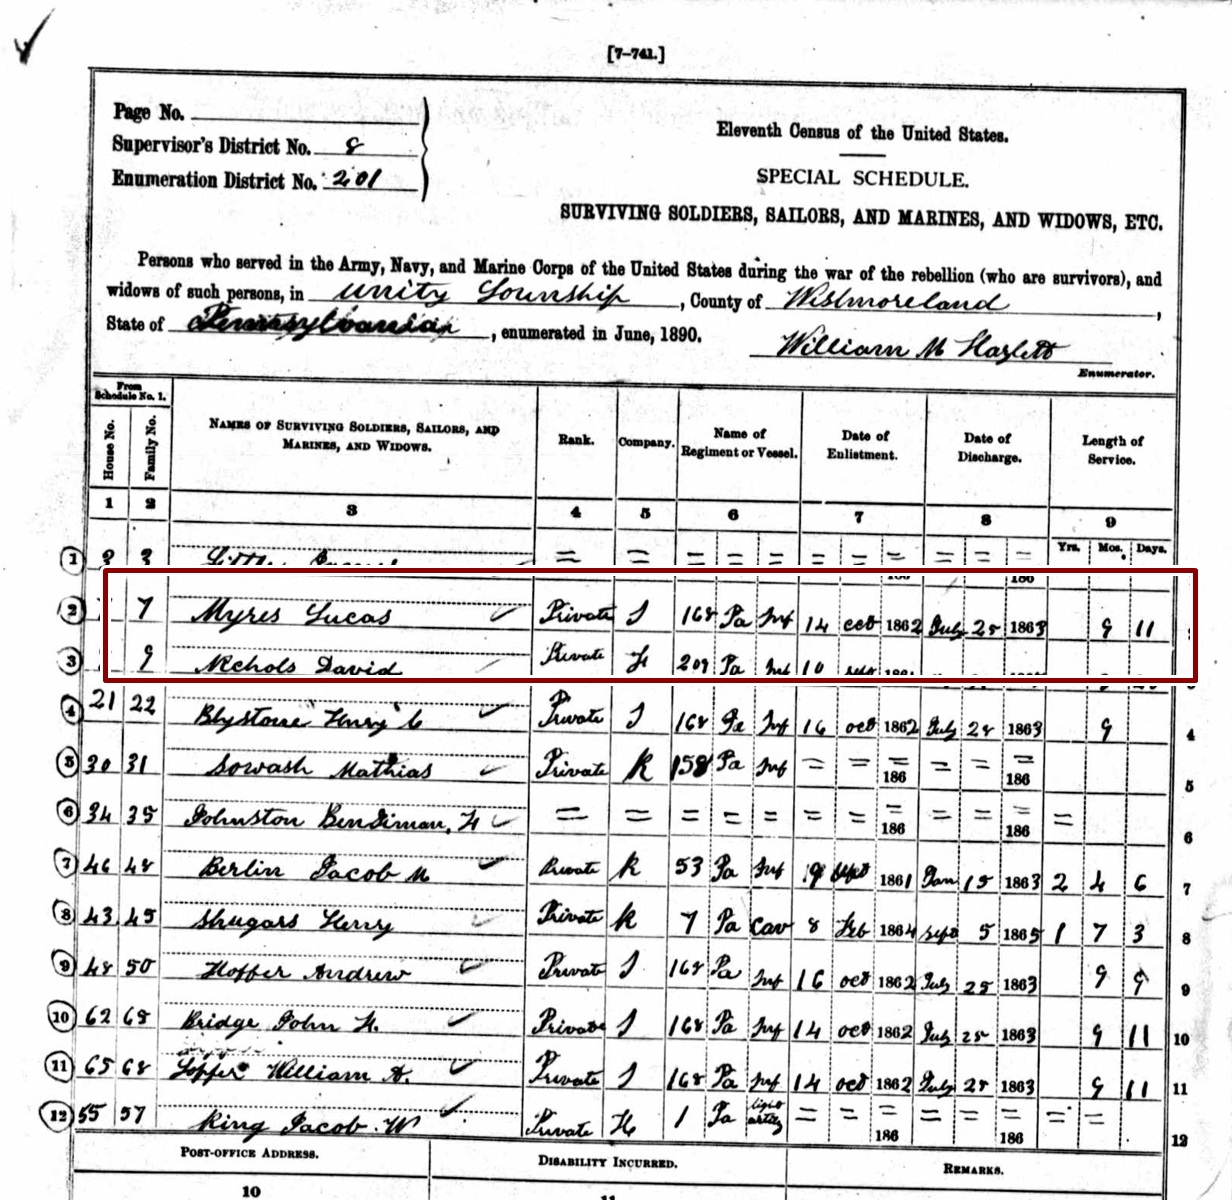 [7-741.]
Page No.
Supervisor's District No. 8
Enumeration District No. 201
Eleventh Census of the United States.
SPECIAL SCHEDULE.
SURVIVING SOLDIERS, SAILORS, AND MARINES, AND WIDOWS, ETC.
Persons who served in the Army, Navy, and Marine Corps of the United States during the war of the rebellion (who are survivors), and
widows of such persons, in Unity Township, County of Westmoreland,
State of Pennsylvania, enumerated in June, 1890.
William M Hazlett
Enumerator.
From Schedule No. 1.
House No. Family No. NAMES OF SURVIVING SOLDIERS, SAILORS, AND MARINES, AND WIDOWS. Rank. Company. Name of Regiment or Vessel. Date of Enlistment. Date of Discharge. Length of Service.
1 2 3 4 5 6 7 8 9
Yrs. Mos. Days.
1 3 3 = = = = = = = = = = =
186 186
2 7 Myres Lucas Private I 168 Pa Inf 14 oct 1862 July 25 1863 9 11
3 9 Nichols David Private 209 Pa Inf 10 sept
4 21 22 Blystone Henry Private I 168 Inf 16 oct 1862 July 28 1863 9 4
5 30 31 Sowash Mathias Private K 158 Pa Inf = = = 186 = = = 186 5
6 34 35 Johnston = = = = = = = = 186 = = = 186 = 6
7 46 48 Berlin Jacob M Private K 53 Pa Inf 9 sept 1861 Jan 15 1863 2 4 6 7
8 43 45 Shugars Henry Private K 7 Pa Cav 8 Feb 1864 sept 5 1865 1 7 3 8
9 48 50 Hoffer Andrew Private I 168 Pa Inf 16 oct 1862 July 25 1863 9 9 9
10 62 65 Bridge John H. Private I 168 Pa Inf 14 oct 1862 July 25 1863 9 11 10
11 65 68 William A. Private I 168 Pa Inf 14 oct 1862 July 25 1863 9 11 11
12 55 57 King Jacob W Private H 1 Pa light = = = 186 = = = 186 = = 12
POST-OFFICE ADDRESS. DISABILITY INCURRED. REMARKS.
10 11